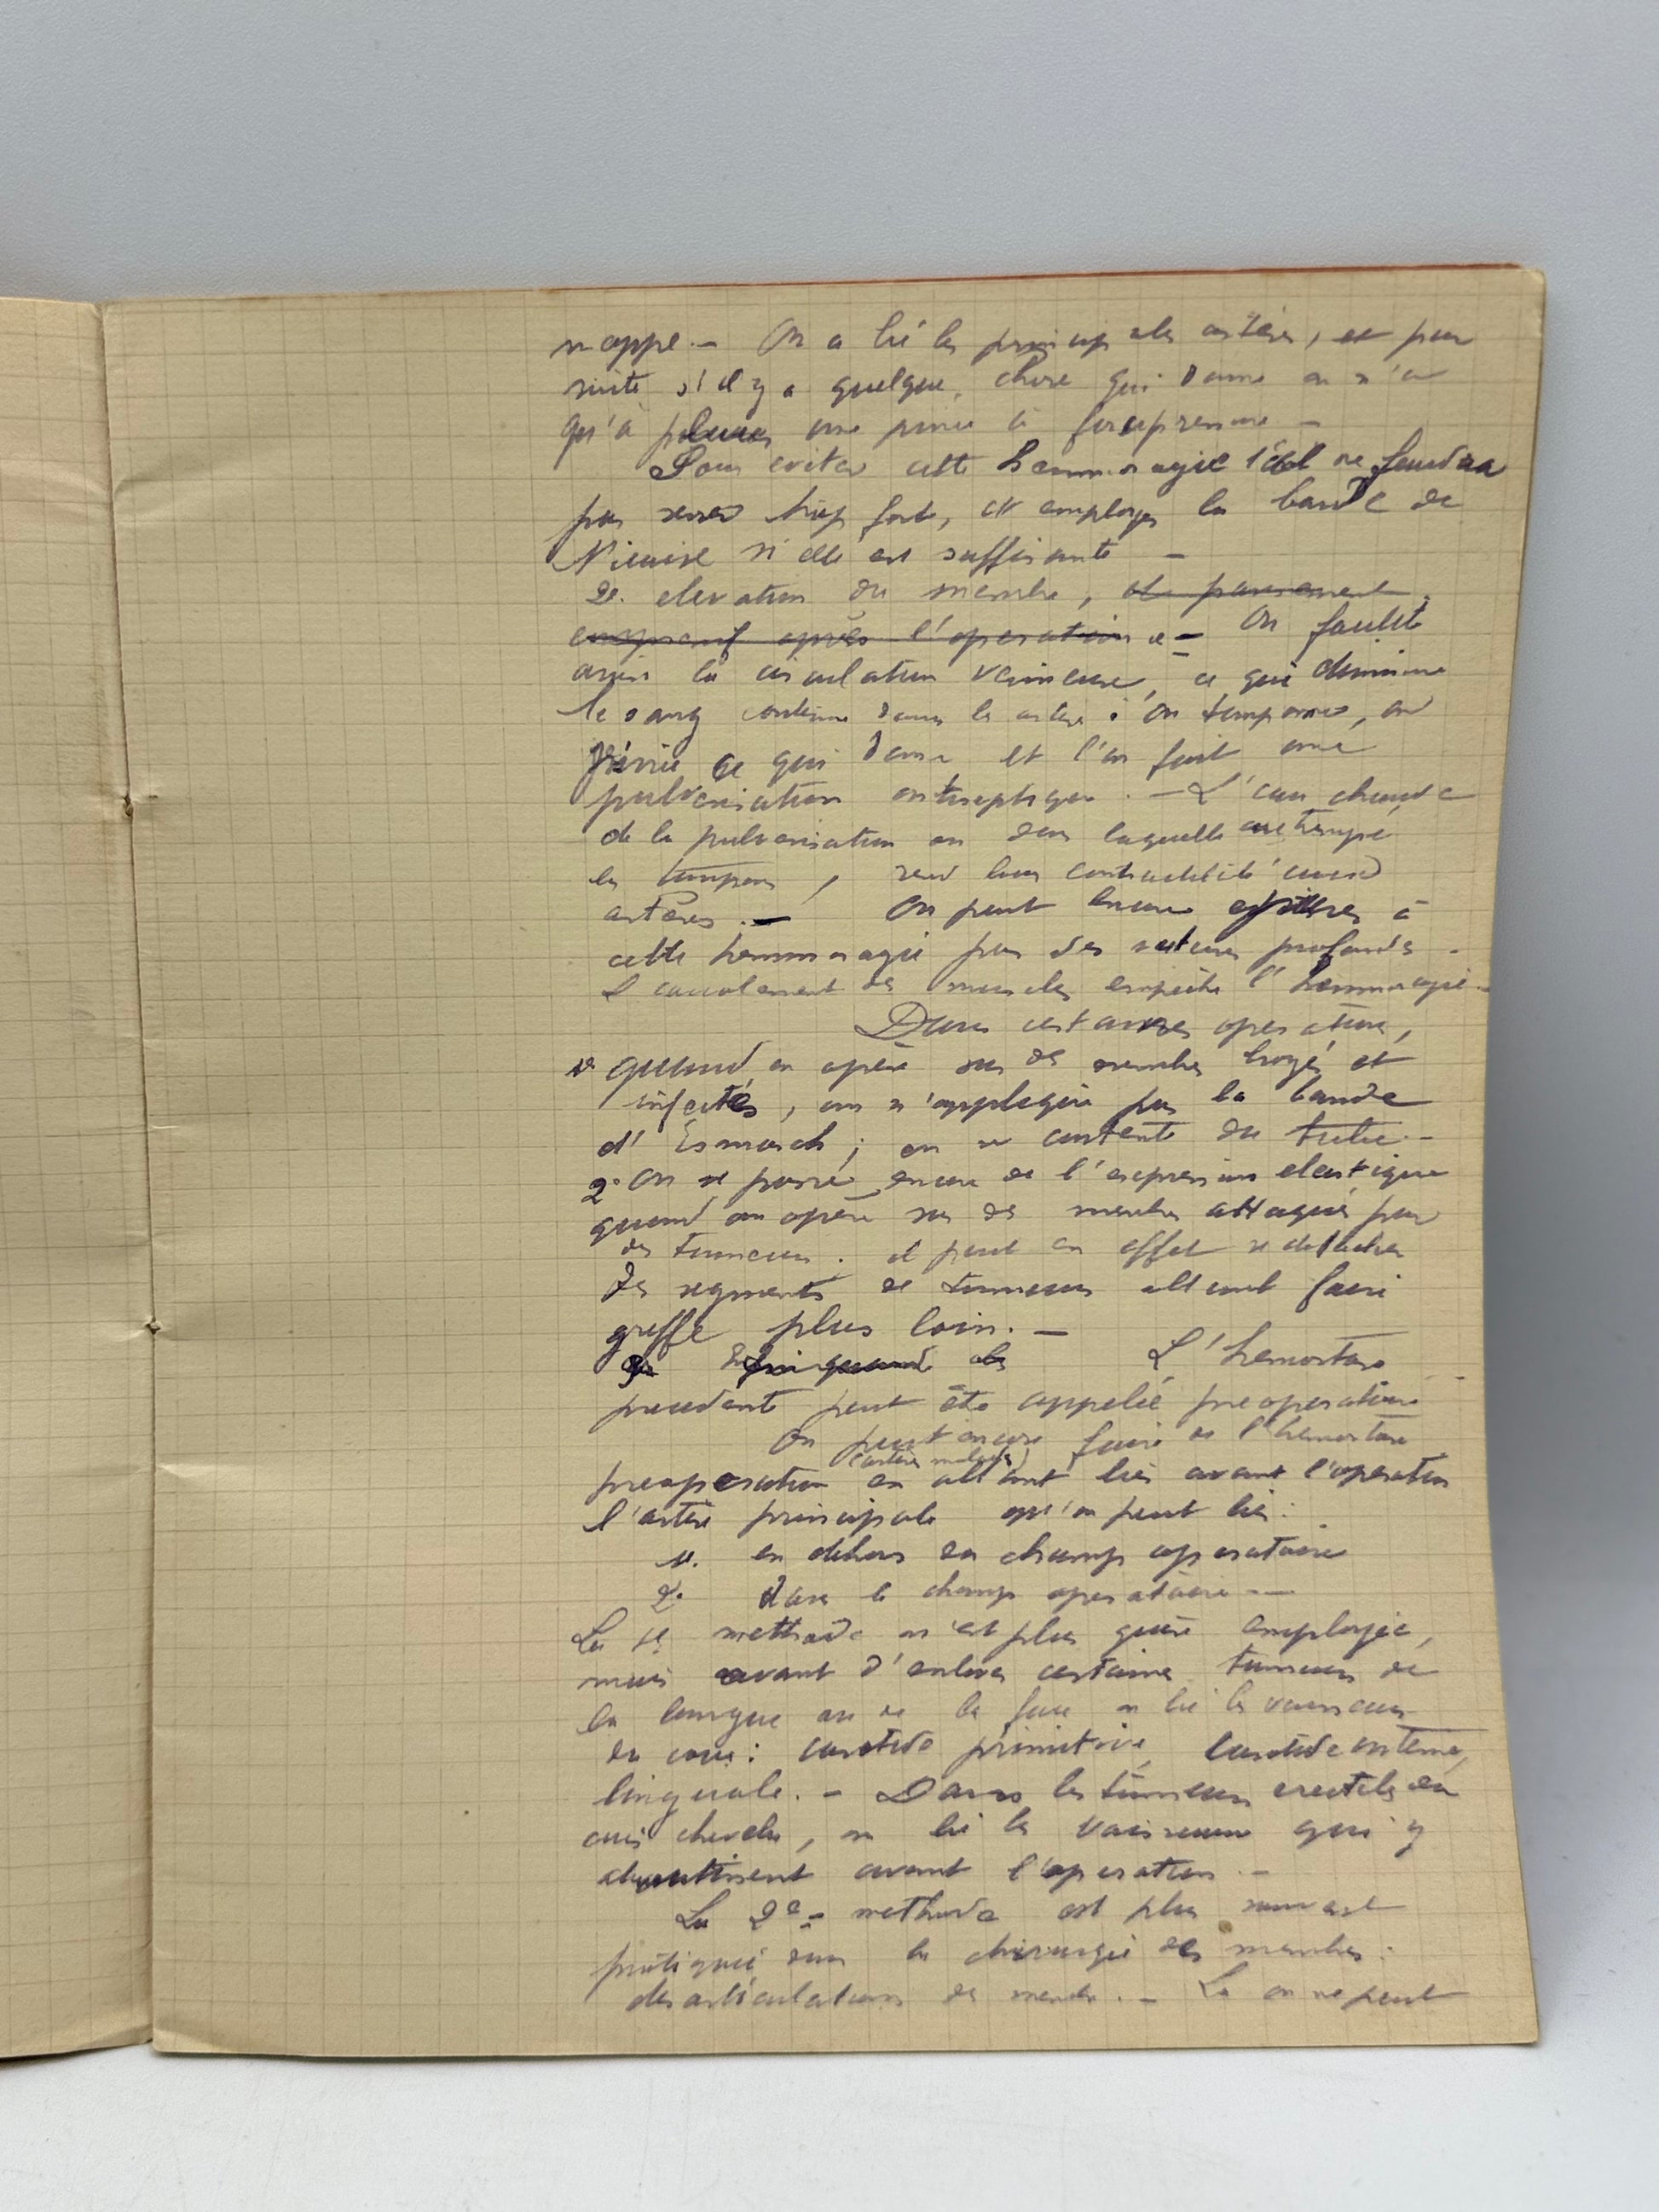 nappe. — On a lié les principales artères, et par
suite s'il y a quelque chose qui donne on n'a
qu'à placer une pince à forcipressure —
Pour eviter cette hemmoragie 1° il ne faudra
pas serrer trop fort, et employer la bande de
Nicaise si elle est suffisante —
2° elevation du membre, et pansement
compressif après l'operation — On facilite
ainsi la circulation veineuse, ce qui diminue
le sang contenu dans les artères : On tamponne, on
pince ce qui donne et l'on fait une
pulverisation antiseptique. — L'eau chaude
de la pulverisation ou dans laquelle on a trempé
les tampons, rend leur contractilité aux
artères. — On peut encore s'opposer à
cette hemmoragie par des sutures profondes —
L'accolement des muscles empêche l'hemmoragie. —
Dans certaines operations,
1° quand on opère sur des membres broyés et
infectés, on n'applique pas la bande
d'Esmarch ; on se contente du tube. —
2° On se passe encore de l'expression elastique
quand on opère sur des membres attaqués par
des tumeurs. il peut en effet se detacher
des segments de tumeurs allant faire
greffe plus loin. —
3° Enfin quand les L'hemostase
precedente peut être appelée preoperatoire
On peut encore faire de l'hemostase
(artères malades)
preoperation en allant lier avant l'operation
l'artère principale qu'on peut lier :
1° en dehors du champ operatoire
2° dans le champ operatoire —
La 1e methode n'est plus guère employée,
mais avant d'enlever certaines tumeurs de
la langue ou de la face on lie les vaisseaux
du cou : carotide primitive, carotide externe,
linguale. — Dans les tumeurs erectiles du
cuir chevelu, on lie les vaisseaux qui y
aboutissent avant l'operation. —
La 2e methode est plus souvent
pratiquée dans la chirurgie des membres :
desarticulations des membres. — Là on ne peut